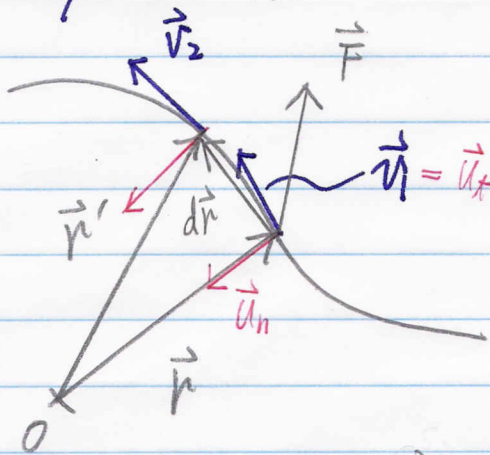 v⃗₂
F⃗
v⃗₁ = u⃗ₜ
r⃗'
dr⃗
u⃗ₙ
r⃗
O